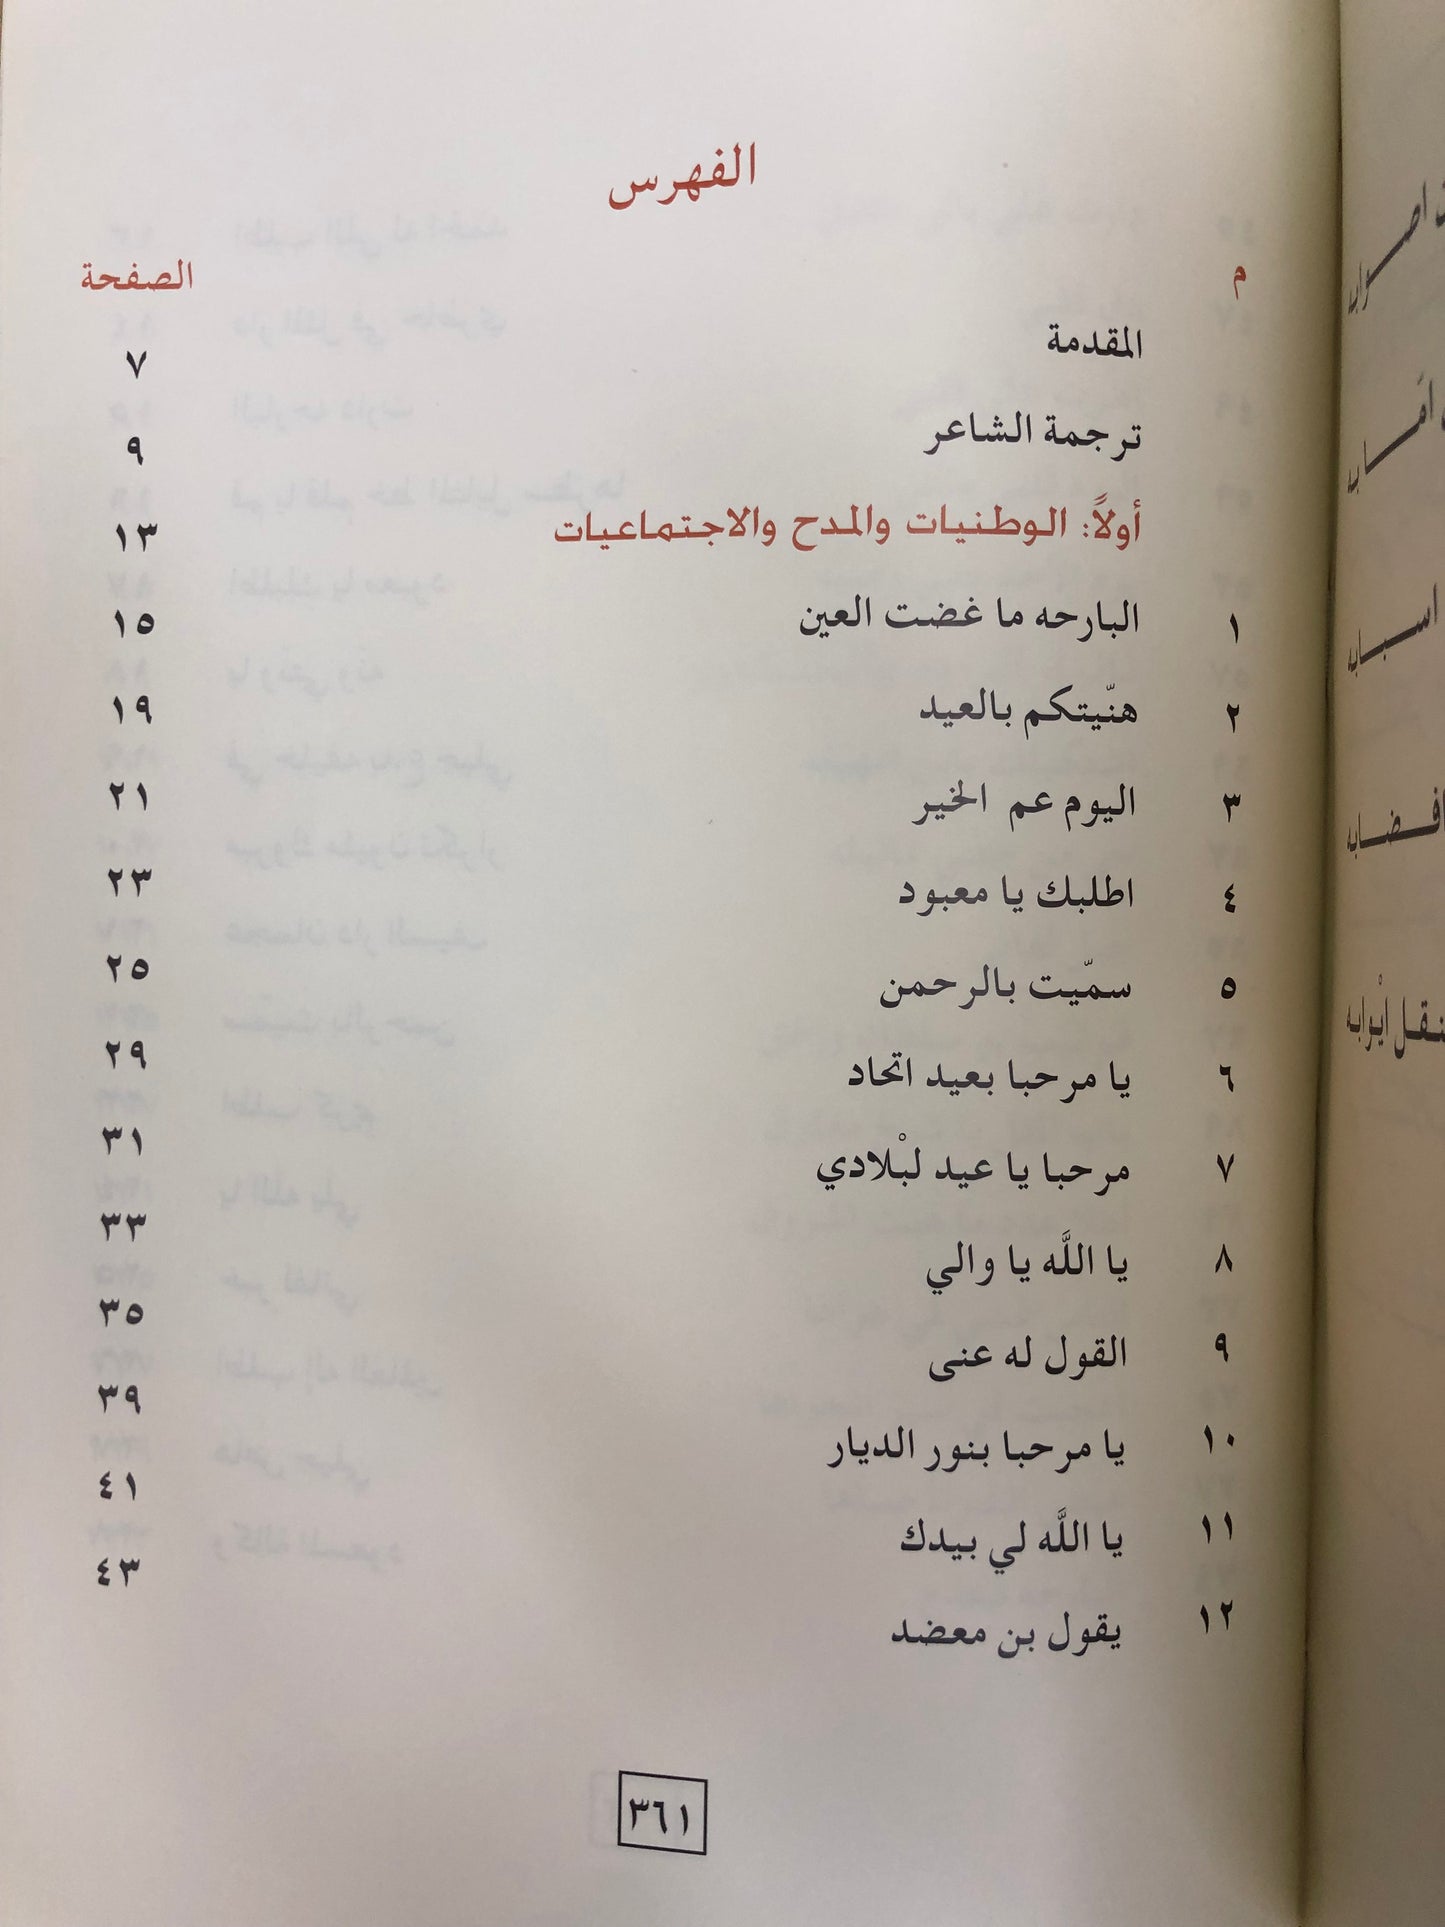 الفهرس
م الصفحة
المقدمة ٧
ترجمة الشاعر ٩
أولاً: الوطنيات والمدح والاجتماعيات ١٣
١ البارحه ما غضت العين ١٥
٢ هنّيتكم بالعيد ١٩
٣ اليوم عم الخير ٢١
٤ اطلبك يا معبود ٢٣
٥ سمّيت بالرحمن ٢٥
٦ يا مرحبا بعيد اتحاد ٢٩
٧ مرحبا يا عيد لبْلادي ٣١
٨ يا اللَّه يا والي ٣٣
٩ القول له عنى ٣٥
١٠ يا مرحبا بنور الديار ٣٩
١١ يا اللَّه لي بيدك ٤١
١٢ يقول بن معضد ٤٣
٣٦١
اسبابه
ايْوابه